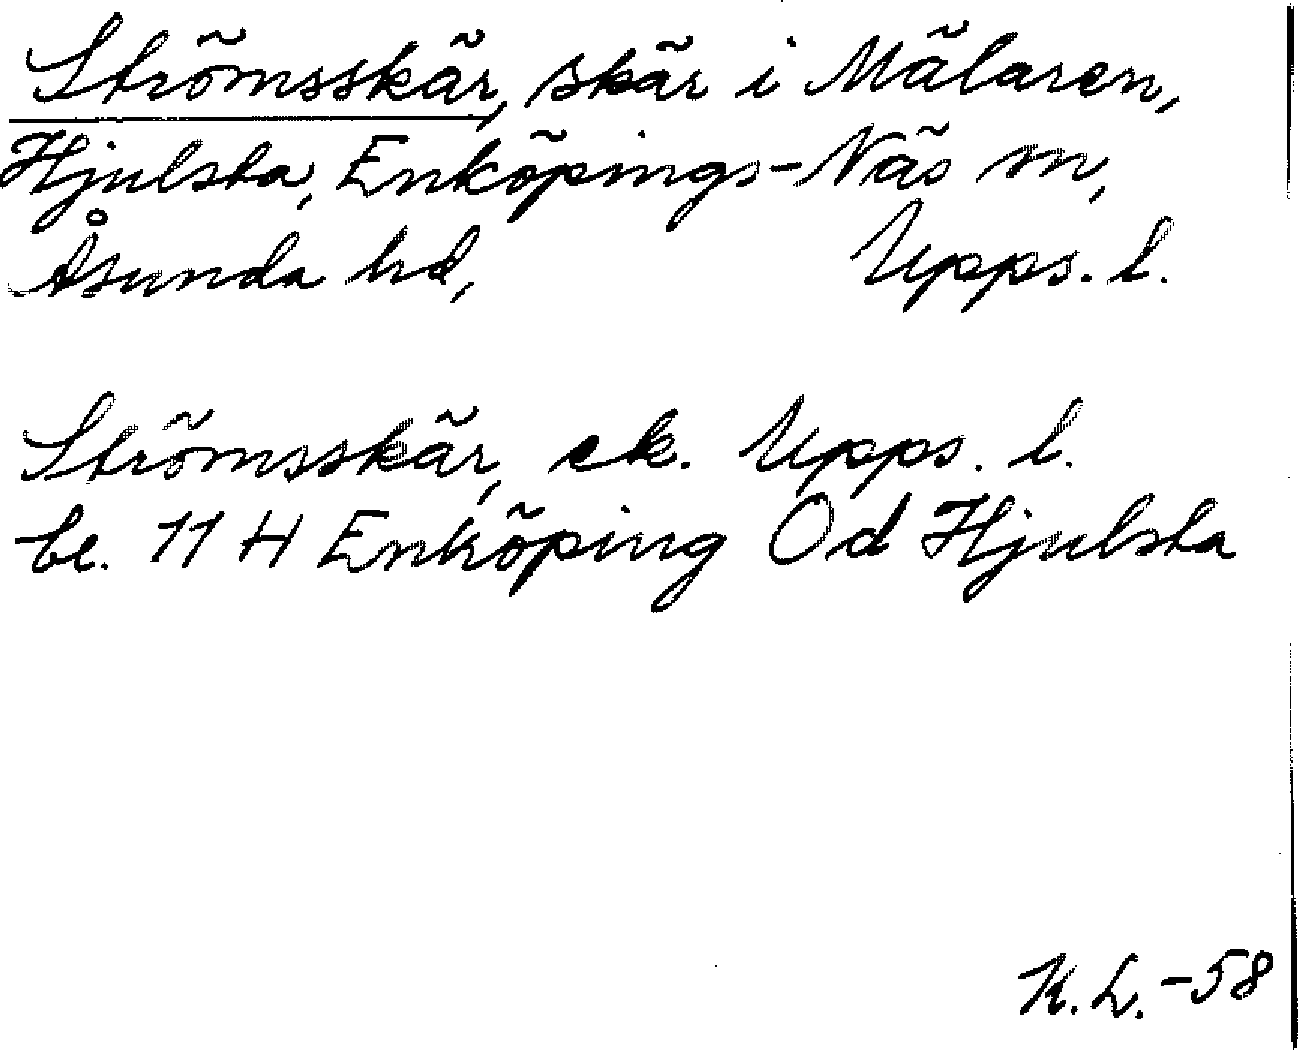 Strömsskär, skär i Mälaren,
Hjulsta, Enköpings-Näs sn,
Åsunda hd, Upps. l.
Strömsskär, ek. Upps. l.
be. 11 H Enköping Od Hjulsta
K. L. -58